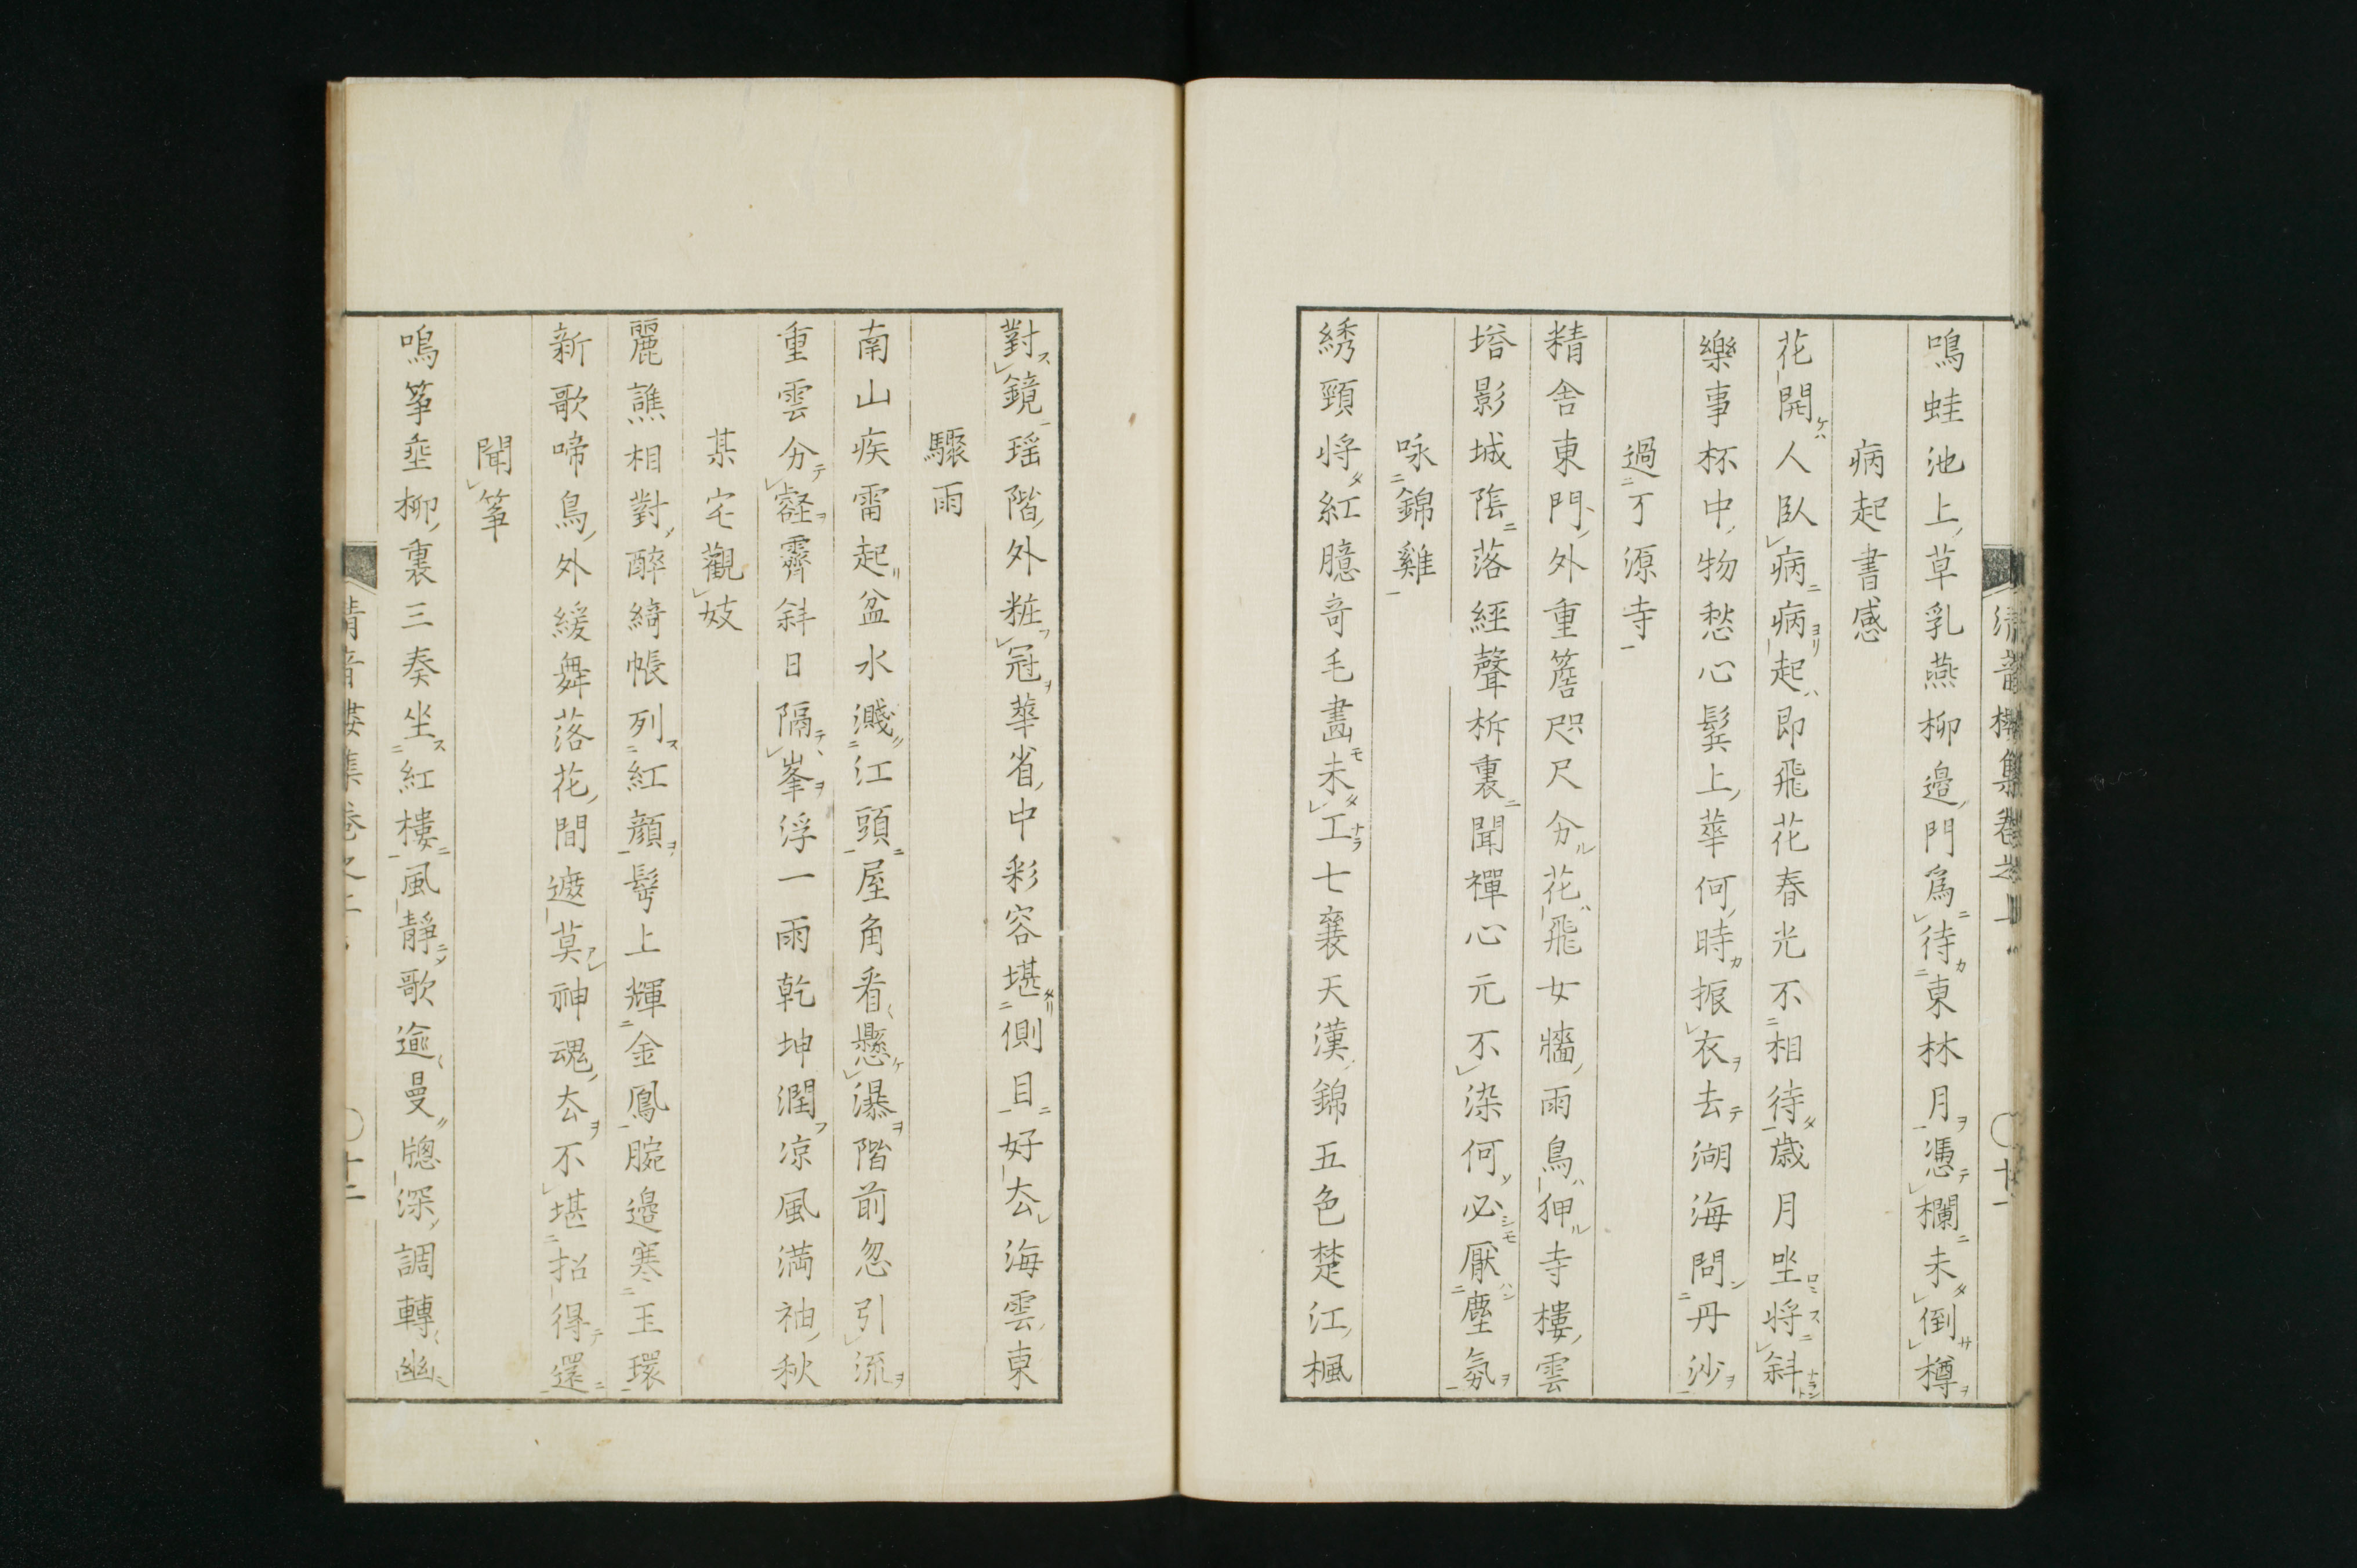 鳴蛙池上草乳燕柳邉門爲待東林月憑欄未倒樽
病起書感
花開人臥病病起即飛花春光不相待歳月坐将斜
樂事杯中物愁心鬓上華何時振衣去湖海問丹沙
過了源寺
精舍東門外重簷咫尺分花飛女牆雨鳥狎寺樓雲
塔影城陰落經聲柝裏聞禪心元不染何必厭塵氛
咏錦雞
綉頸将紅臆奇毛畫未工七襄天漢錦五色楚江楓
對鏡瑶階外粧冠華省中彩容堪側目好厺海雲東
驟雨
南山疾雷起盆水濺江頭屋角看懸瀑階前忽引流
重雲分壑霽斜日隔峯浮一雨乾坤潤凉風満袖秋
某宅觀妓
麗譙相對醉綺帳列紅顔髩上輝金鳳腕邉寒玉環
新歌啼鳥外緩舞落花間遮莫神魂厺不堪招得還
聞筝
鳴筝垂柳裏三奏坐紅樓風靜歌逾曼牕深調轉幽
清音樓集卷之二 十二